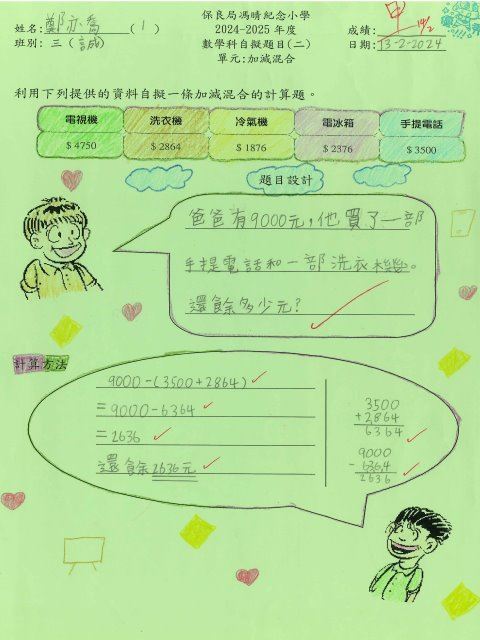 保良局馮晴紀念小學
姓名:鄭亦喬(1)
2024-2025 年度
成績:甲 19/2
班別:三(誠)
數學科自擬題目(二)
日期:13-2-2024
單元:加減混合
利用下列提供的資料自擬一條加減混合的計算題。
電視機 洗衣機 冷氣機 電冰箱 手提電話
$ 4750 $ 2864 $ 1876 $ 2376 $ 3500
題目設計
爸爸有9000元,他買了一部
手提電話和一部洗衣機。
還餘多少元?
計算方法
9000-(3500+2864)
=9000-6364
=2636
還餘2636元
3500
+2864
6364
9000
-6364
2636